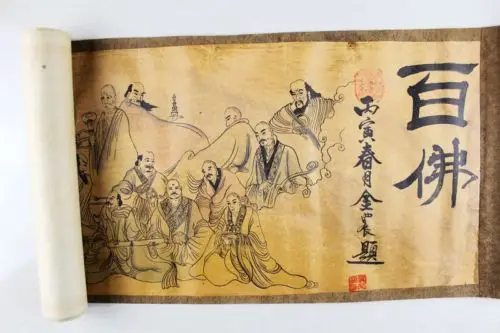 百佛
丙寅春月金農題